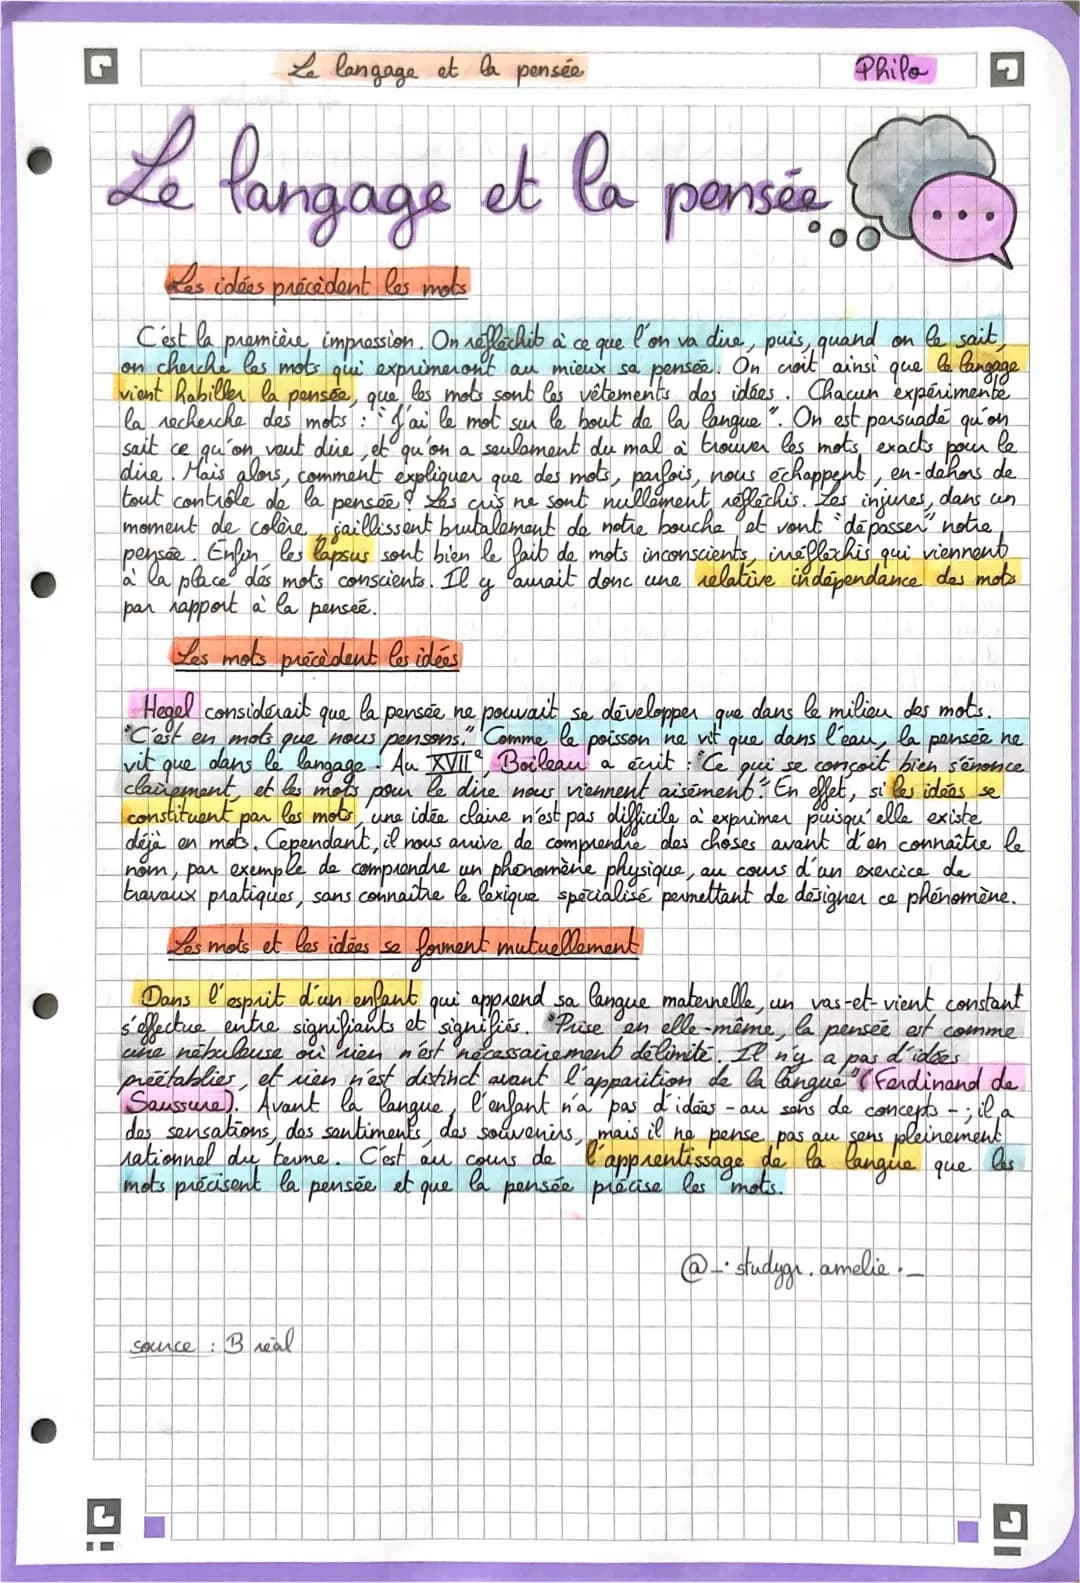 Le langage et la pensée
Philo
Le langage et la pensée
Les idées précèdent les mots
C'est la première impression. On réfléchit à ce que l'on va dire, puis, quand on le sait,
on cherche les mots qui exprimeront au mieux sa pensée. On croit ainsi que le langage
vient habiller la pensée, que les mots sont les vêtements des idées. Chacun expérimente
la recherche des mots : "J'ai le mot sur le bout de la langue". On est persuadé qu'on
sait ce qu'on veut dire, et qu'on a seulement du mal à trouver les mots exacts pour le
dire. Mais alors, comment expliquer que des mots, parfois, nous échappent, en-dehors de
tout contrôle de la pensée ? Les cris ne sont nullement réfléchis. Les injures, dans un
moment de colère, jaillissent brutalement de notre bouche et vont "dépasser" notre
pensée. Enfin, les lapsus sont bien le fait de mots inconscients, irréflechis qui viennent
à la place des mots conscients. Il y aurait donc une relative indépendance des mots
par rapport à la pensée.
Les mots précèdent les idées
Hegel considérait que la pensée ne pouvait se développer que dans le milieu des mots.
"C'est en mots que nous pensons." Comme le poisson ne vit que dans l'eau, la pensée ne
vit que dans le langage. Au XVIIe, Boileau a écrit : "Ce qui se conçoit bien s'énonce
clairement, et les mots pour le dire nous viennent aisément". En effet, si les idées se
constituent par les mots, une idée claire n'est pas difficile à exprimer puisqu'elle existe
déjà en mots. Cependant, il nous arrive de comprendre des choses avant d'en connaître le
nom, par exemple de comprendre un phénomène physique, au cours d'un exercice de
travaux pratiques, sans connaître le lexique spécialisé permettant de désigner ce phénomène.
Les mots et les idées se forment mutuellement
Dans l'esprit d'un enfant qui apprend sa langue maternelle, un vas-et-vient constant
s'effectue entre signifiants et signifiés. "Prise en elle-même, la pensée est comme
une nébuleuse où rien n'est nécessairement délimité. Il n'y a pas d'idées
préétablies, et rien n'est distinct avant l'apparition de la langue" (Ferdinand de
Saussure). Avant la langue, l'enfant n'a pas d'idées - au sens de concepts - ; il a
des sensations, des sentiments, des souvenirs, mais il ne pense pas au sens pleinement
rationnel du terme. C'est au cours de l'apprentissage de la langue que les
mots précisent la pensée et que la pensée précise les mots.
@_.studygr.amelie._
source : B réal